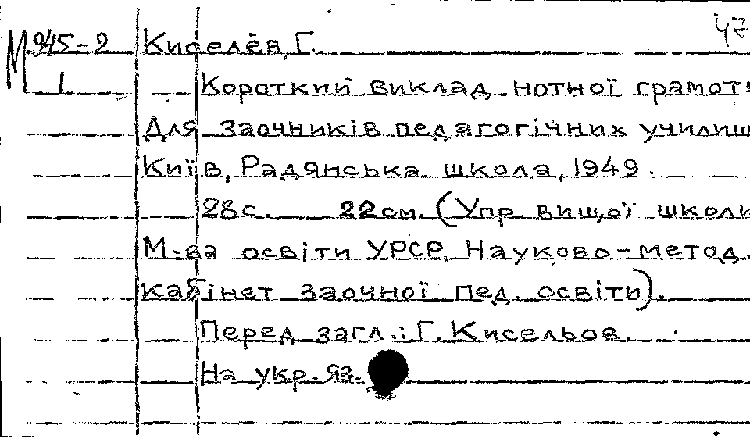 47
М 945-2 Киселёв, Г.
1 Короткий виклад нотної грамоти
Для заочників педагогічних училищ
Київ, Радянська школа, 1949.
28с. 22см. (Упр вищої школи
М-ва освіти УРСР. Науково-метод.
кабінет заочної пед. освіти).
Перед загл.: Г. Кисельов.
На укр. яз.